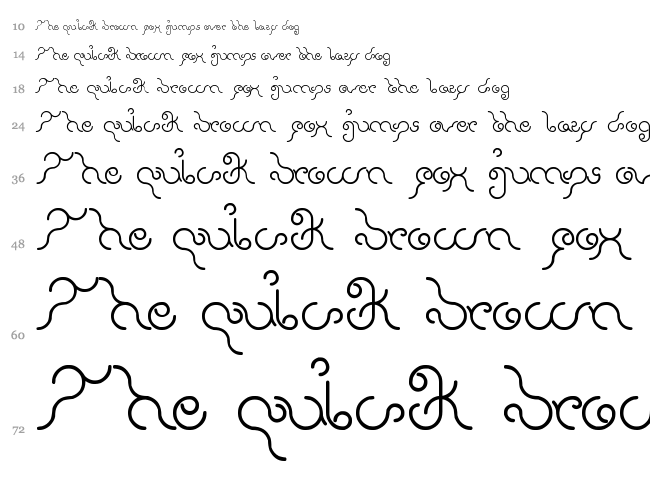 10 The quick brown fox jumps over the lazy dog
14 The quick brown fox jumps over the lazy dog
18 The quick brown fox jumps over the lazy dog
24 The quick brown fox jumps over the lazy dog
36 The quick brown fox jumps ov
48 The quick brown fox
60 The quick brown
72 The quick bro